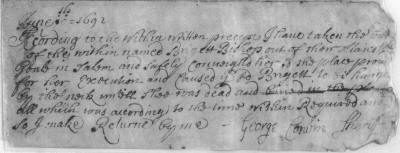 June 10th - 1692
According to the Within Written precept I have taken the body
of the within named Brigett Bishop out of their Majesties
Goale in Salem and Safely Conveighd her to the place provided
for her Execution and Caused the sd Brigett to be hanged
by the neck untill Shee was dead and buried in the place
all which was according to the time Within Required and
So I make Returne by me
George Corwin Sheriff